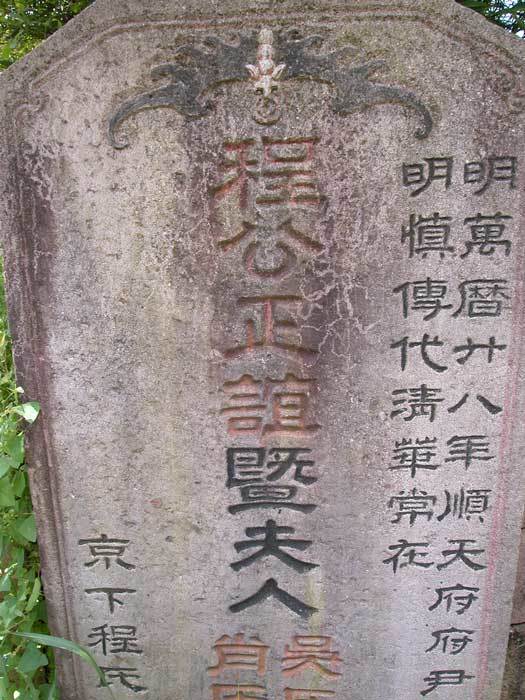 明萬曆廿八年順天府府尹
明慎傳代清華常在
程公正誼暨夫人
吳
肖
京下程氏